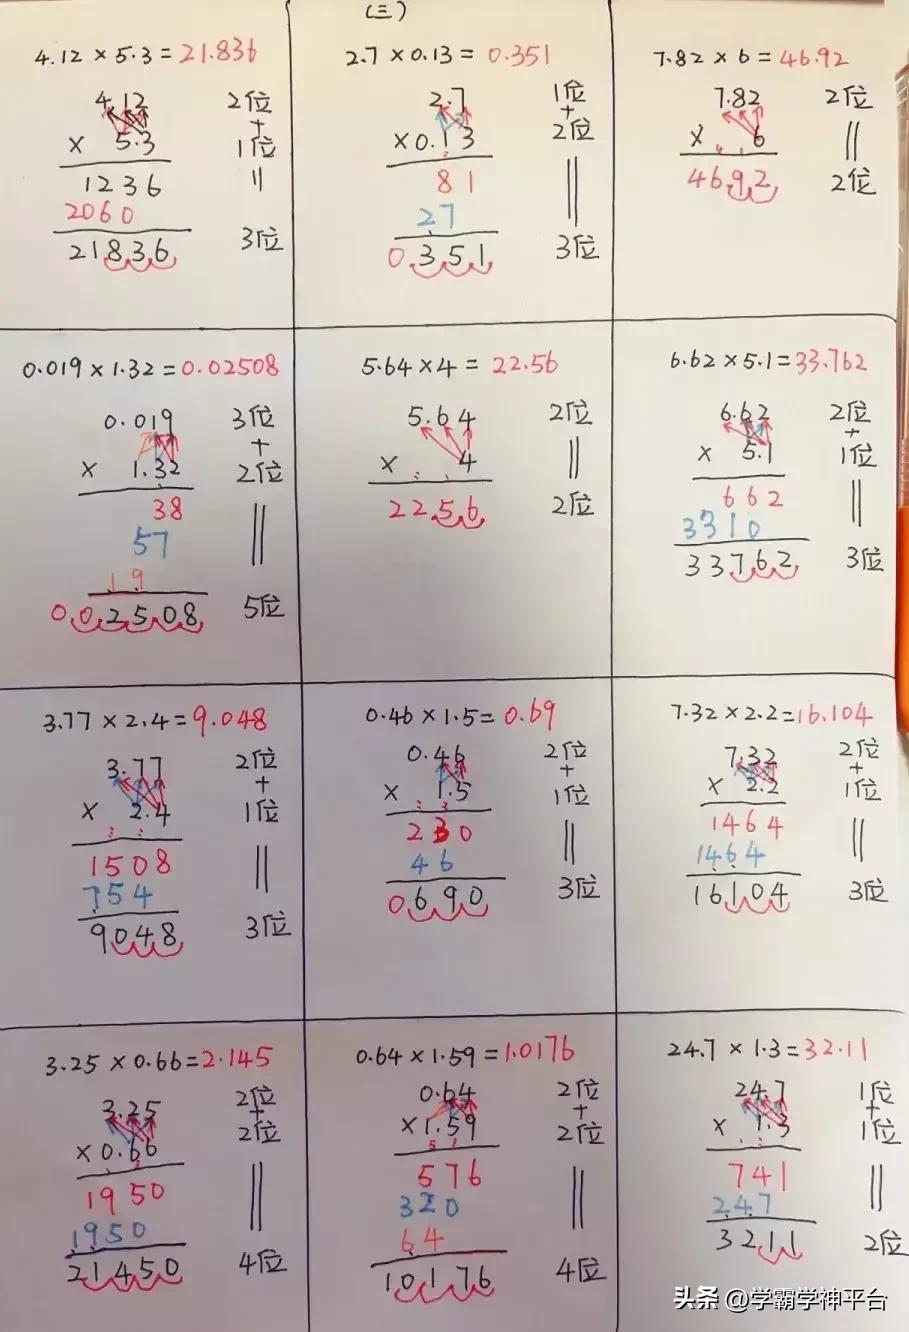 (三)
4.12×5.3=21.836
4.12 2位
+
× 5.3 1位
॥
1236
2060
21836 3位
2.7×0.13=0.351
2.7 1位
+
×0.13 2位
81
27
0.351 3位
7.82×6=46.92
7.82 2位
× 6
4692 2位
0.019×1.32=0.02508
0.019 3位
+
× 1.32 2位
38
57
19
0.02508 5位
5.64×4=22.56
5.64 2位
× 4
2256 2位
6.62×5.1=33.762
6.62 2位
+
× 5.1 1位
662
3310
33762 3位
3.77×2.4=9.048
3.77 2位
+
× 2.4 1位
1508
754
9048 3位
0.46×1.5=0.69
0.46 2位
+
× 1.5 1位
230
46
0690 3位
7.32×2.2=16.104
7.32 2位
+
× 2.2 1位
1464
1464
16104 3位
3.25×0.66=2.145
3.25 2位
+
×0.66 2位
1950
1950
21450 4位
0.64×1.59=1.0176
0.64 2位
+
×1.59 2位
576
320
64
10176 4位
24.7×1.3=32.11
24.7 1位
+
× 1.3 1位
741
247
3211 2位
头条 @学霸学神平台